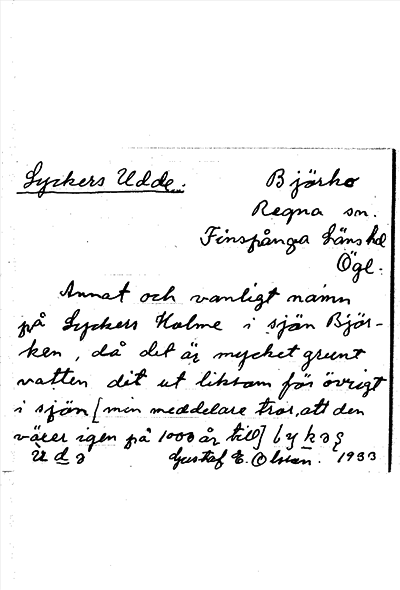 Lyckers Udde.
Björke
Regna sn.
Finspånga länshd
Ögl.
Annat och vanligt namn
på Lyckers Holme i sjön Björ-
ken, då det är mycket grunt
vatten dit ut liksom för övrigt
i sjön [min meddelare tror, att den
växer igen på 1000 år till]
Gustaf E. Olsson. 1933